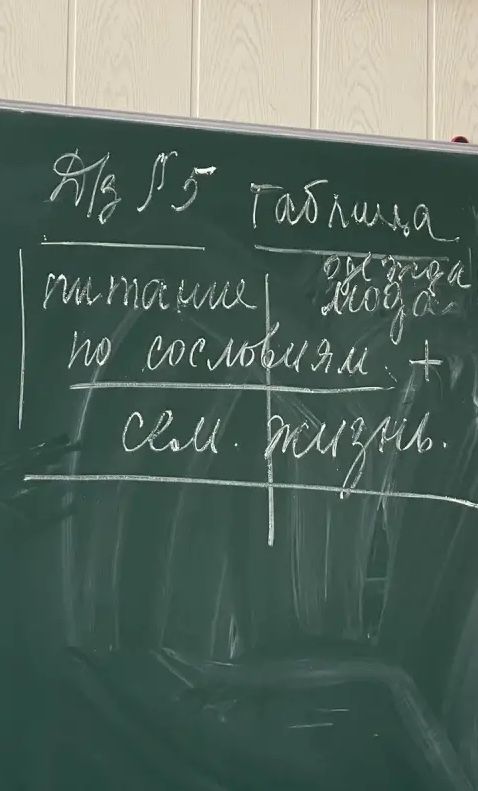 Д/з №5 Таблица
питание одежда
мода
по сословиям. +
сем. жизнь.